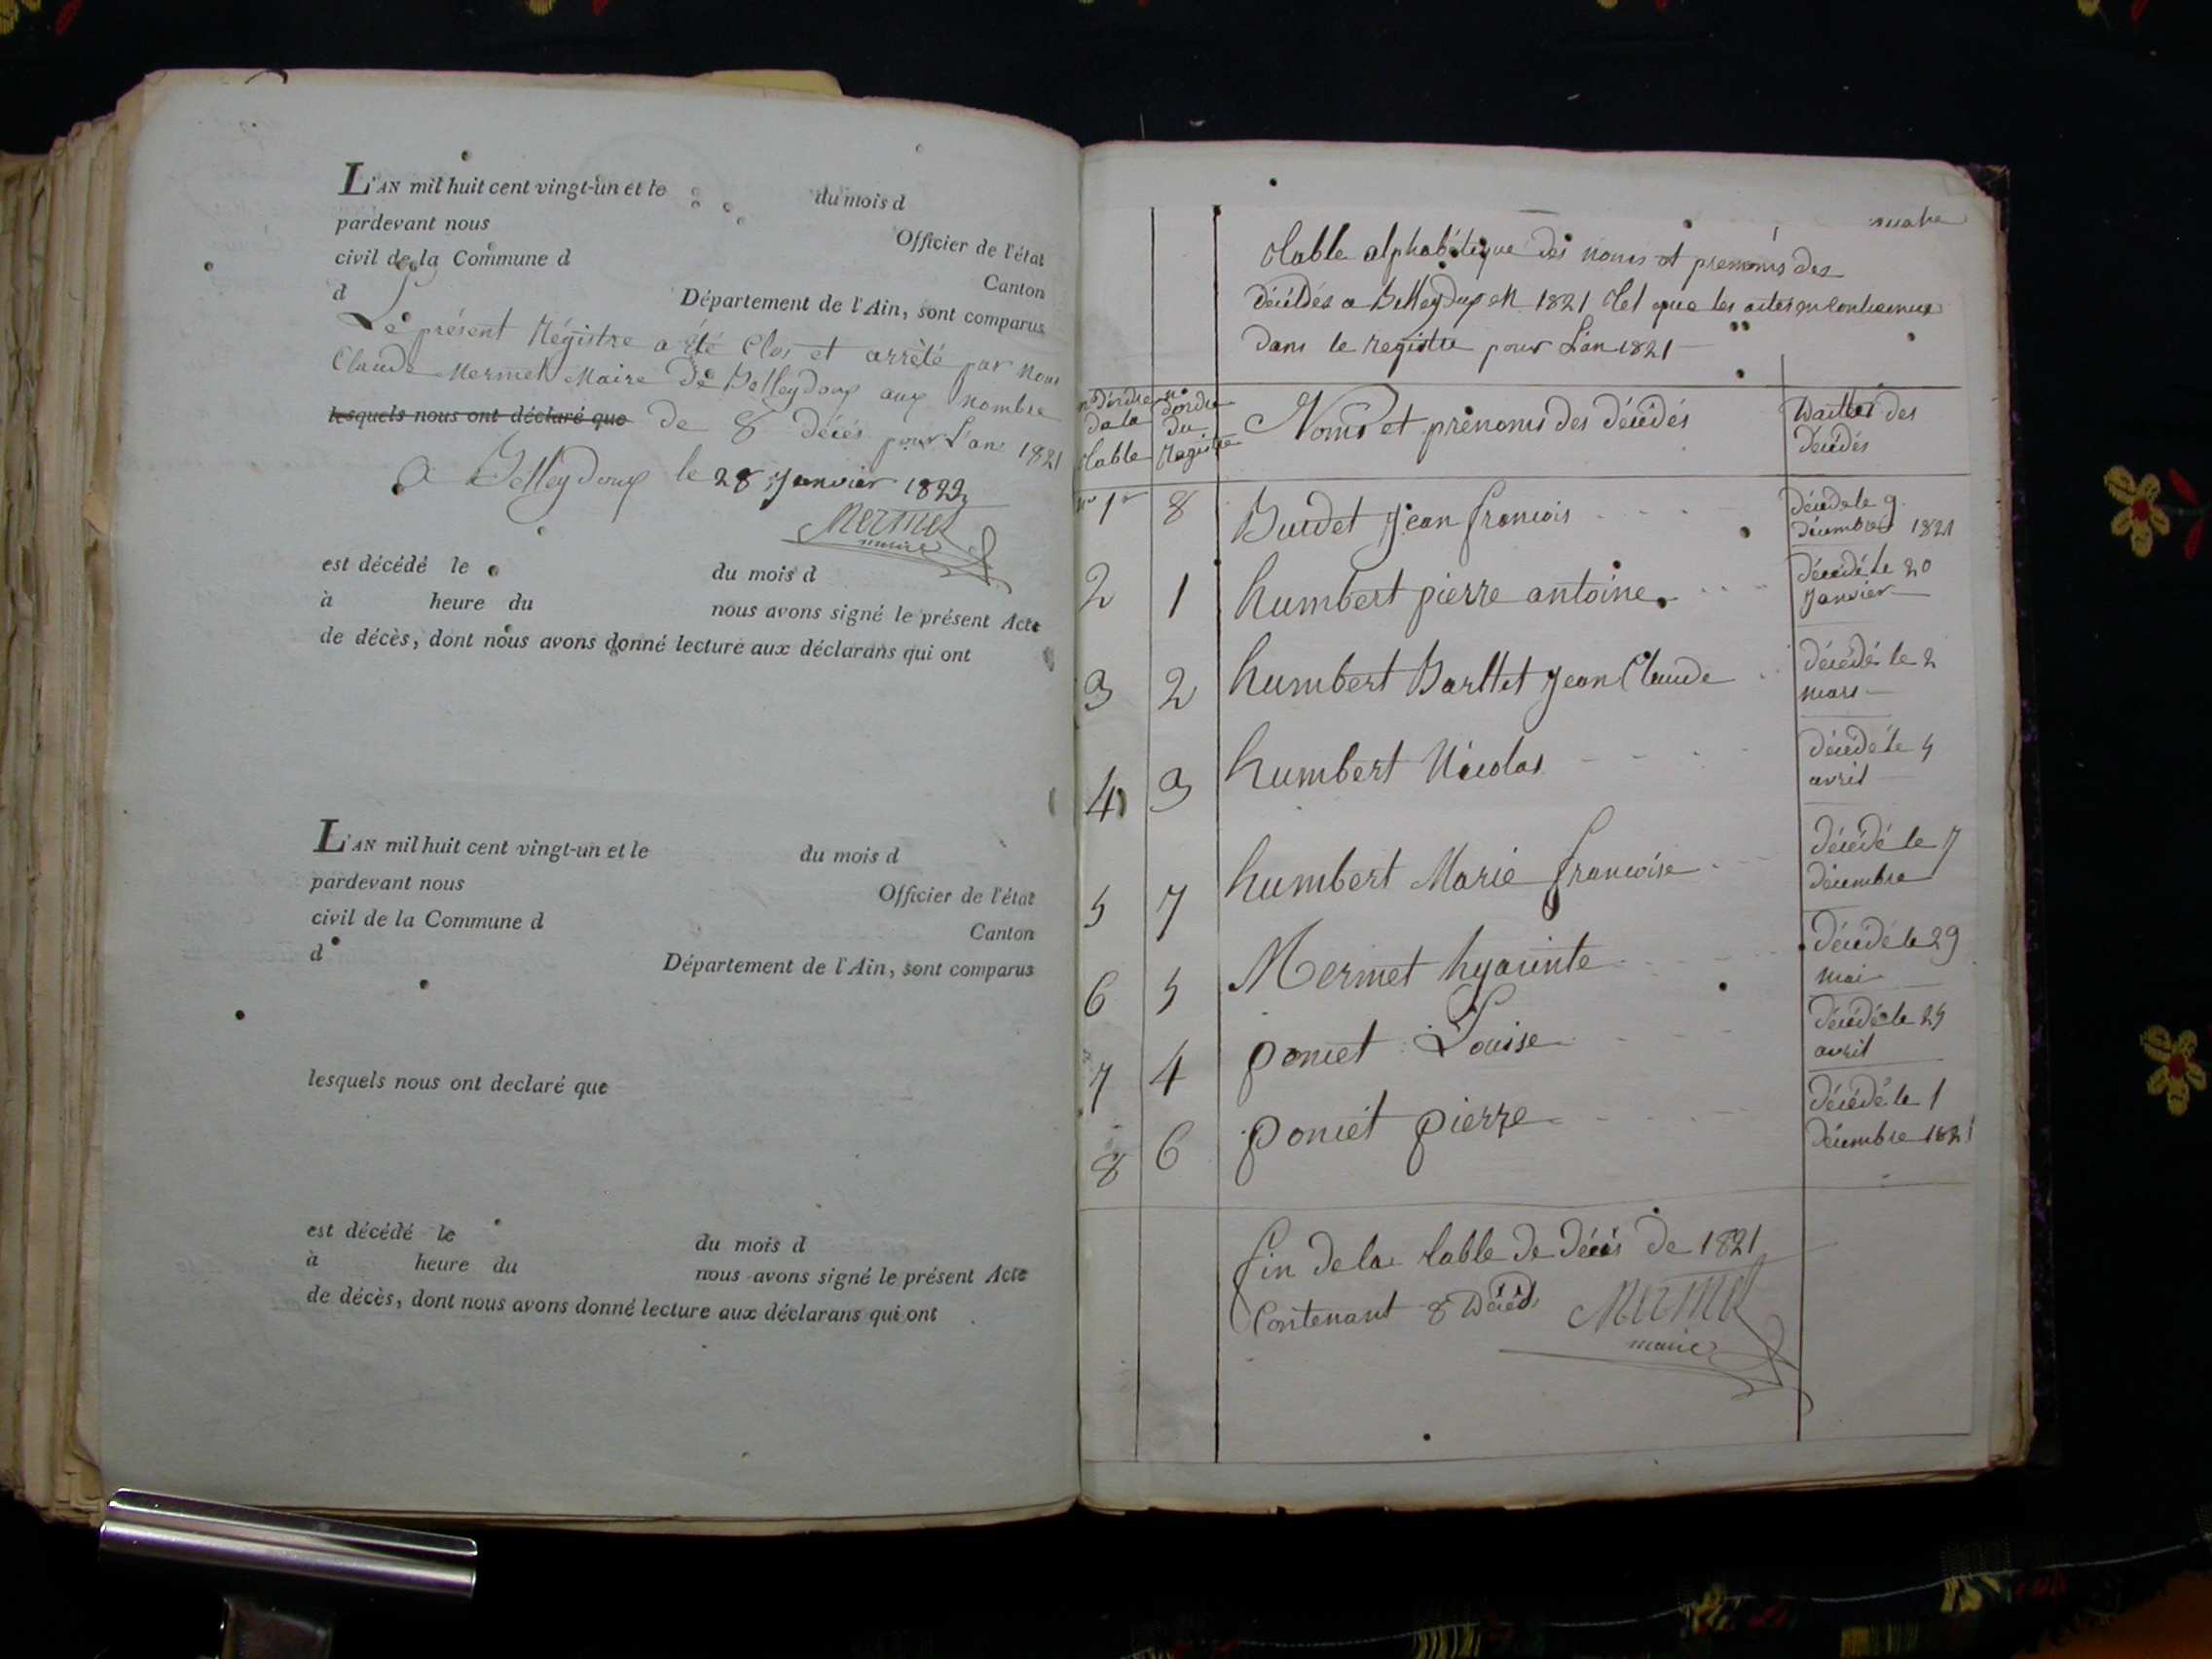 L'AN mil huit cent vingt-un et le du mois d
pardevant nous Officier de l'état
civil de la Commune d Canton
d Département de l'Ain, sont comparus
Le présent Régistre a été Clos et arrèté par nous
Claude Mermet Maire De Belleydoux aux nombre
lesquels nous ont déclaré que de 8 décés pour L'an 1821
a Belleydoux le 28 Janvier 1822
Mermet
maire
est décédé le du mois d
à heure du nous avons signé le présent Acte
de décès, dont nous avons donné lecture aux déclarans qui ont
L'AN mil huit cent vingt-un et le du mois d
pardevant nous Officier de l'état
civil de la Commune d Canton
d Département de l'Ain, sont comparus
lesquels nous ont declaré que
est décédé le du mois d
à heure du nous avons signé le présent Acte
de décès, dont nous avons donné lecture aux déclarans qui ont
Table alphabétique des noms et prenoms des
décédés a Belleydoux en 1821 tel que les actes
dans le registre pour L'an 1821
n° d'ordre de la table n° d'ordre du Registre Noms et prénoms des décédés Dattes des décédés
n° 1er 8 Burdet Jean francois décédé le 9
décembre 1821
2 1 humbert pierre antoine décédé le 20
Janvier
3 2 humbert Barltet Jean Claude décédé le 2
mars
4 3 humbert Nicolas décédé le 5
avril
5 7 humbert Marie francoise décédé le 7
décembre
6 5 Mermet hyacinte décédé le 29
mai
7 4 poncet Louise décédé le 25
avril
8 6 poncet pierre décédé le 1
décembre 1821
fin de la table de décés de 1821
Contenant 8 Décés Mermet
maire